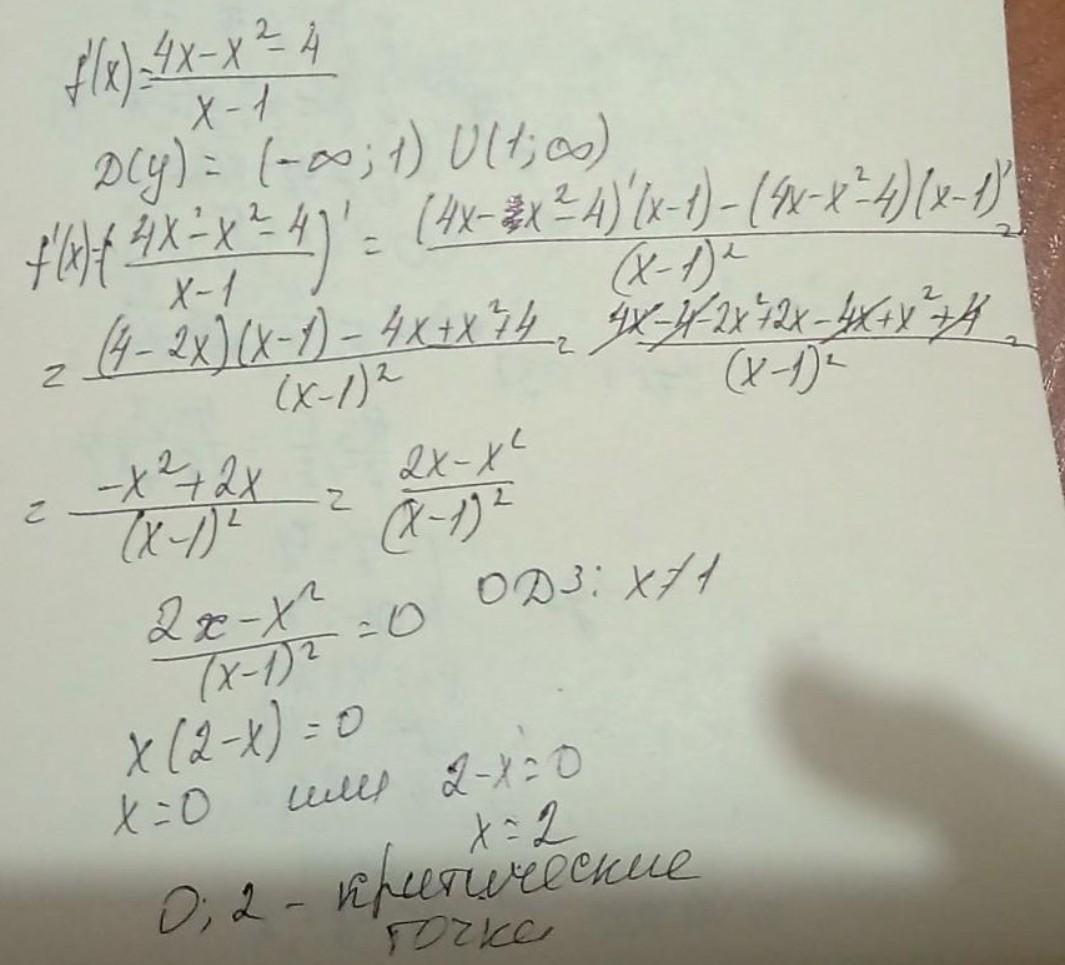 f'(x)=(4x-x²-4)/(x-1)
D(y) = (-∞; 1) U (1; ∞)
f'(x)=((4x-x²-4)/(x-1))' = ((4x-x²-4)'(x-1)-(4x-x²-4)(x-1)')/(x-1)² =
= ((4-2x)(x-1)-4x+x²+4)/(x-1)² = (4x-4-2x²+2x-4x+x²+4)/(x-1)² =
= (-x²+2x)/(x-1)² = (2x-x²)/(x-1)²
(2x-x²)/(x-1)² = 0 ОДЗ: x≠1
x(2-x)=0
x=0 или 2-x=0
x=2
0; 2 - критические
точки